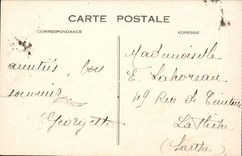 CARTE POSTALE
CORRESPONDANCE
ADRESSE
amitiés, bon
souvenir
Georgette
Mademoiselle
E. Lahoreau
49 Rue de
La Flèche
(Sarthe)